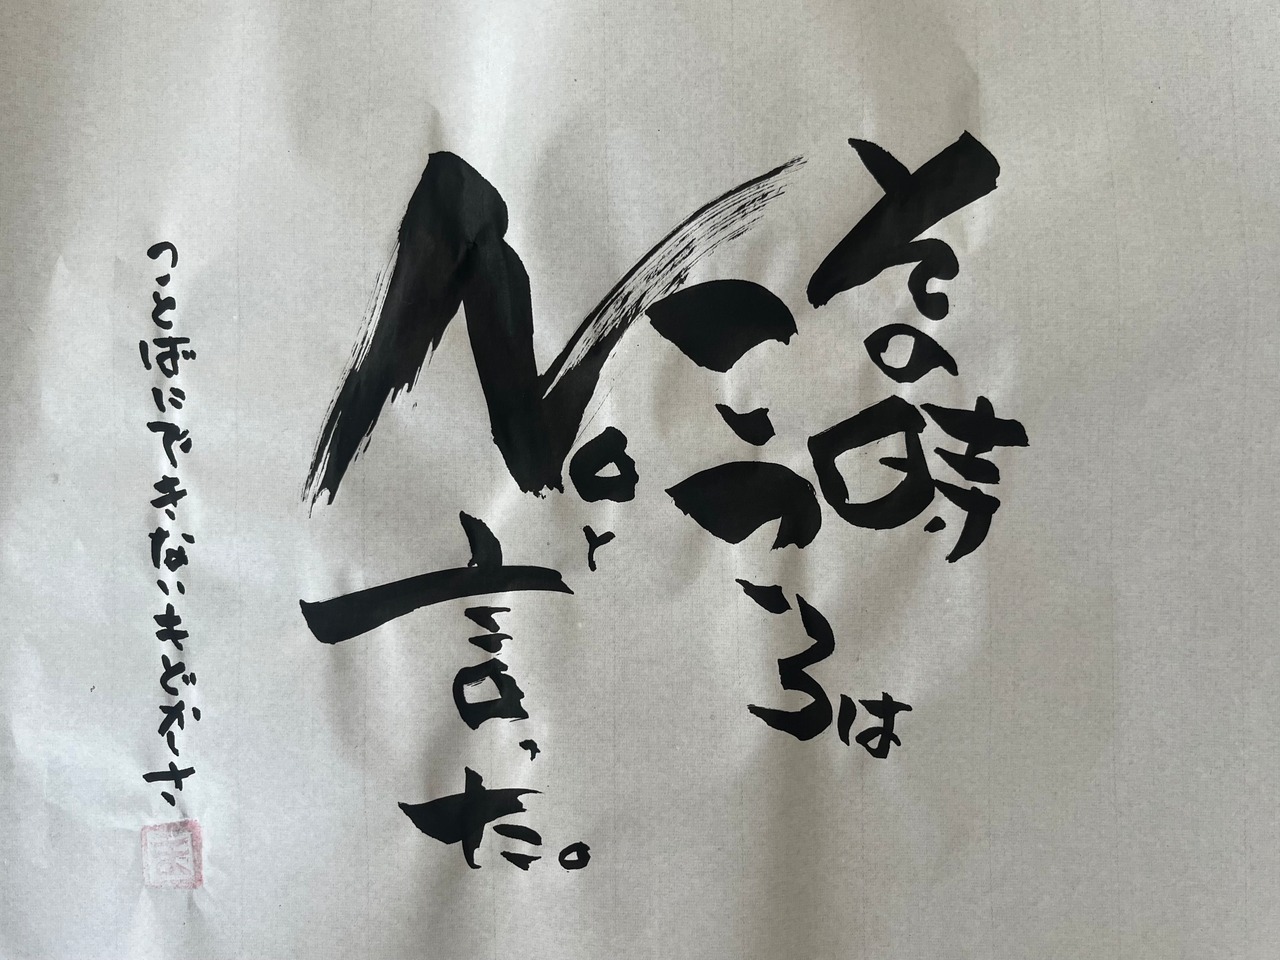 その時
こころは
Noと
言った。
ことばにできないけど